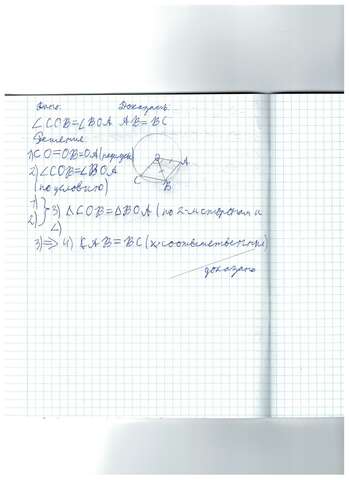 Дано: Доказать:
∠COB=∠BOA AB=BC
Решение:
1) CO=OB=OA (радиусы)
2) ∠COB=∠BOA
(по условию)
1)
2) } 3) ΔCOB=ΔBOA (по 2-м сторонам и
∠)
3) => 4) AB=BC (к-соответственные)
доказано
A
B
C